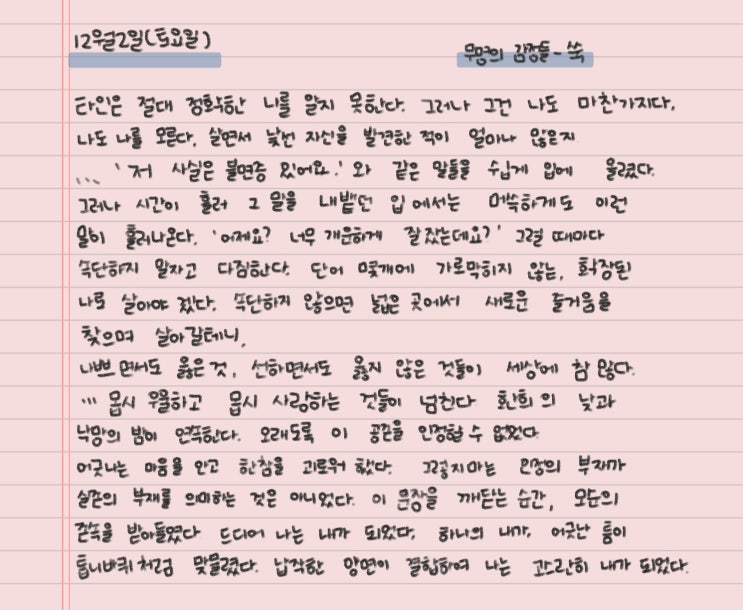 12월2일(토요일)
무명의 감정들 - 쑥
타인은 절대 정확한 나를 알지 못한다. 그러나 그건 나도 마찬가지다.
나도 나를 모른다. 살면서 낯선 자신을 발견한 적이 얼마나 많은지
... '저 사실은 불면증 있어요.' 와 같은 말들을 수십개 입에 올렸다.
그러나 시간이 흘러 그 말을 내뱉던 입에서는 머쓱하게도 이런
말이 흘러나온다. '어제요? 너무 개운하게 잘 잤는데요?' 그럴 때마다
속단하지 말자고 다짐한다. 단어 몇개에 가로막히지 않는, 확장된
나로 살아야 겠다. 속단하지 않으면 넓은 곳에서 새로운 즐거움을
찾으며 살아갈테니.
나쁘면서도 옳은 것, 선하면서도 옳지 않은 것들이 세상에 참 많다.
... 몹시 우울하고 몹시 사랑하는 것들이 넘친다 환희의 낮과
낙망의 밤이 연속한다. 오래도록 이 공존을 인정할 수 없었다
어긋나는 마음을 안고 한참을 괴로워 했다. 그렇지마는 인정의 부재가
실존의 부재를 의미하는 것은 아니었다. 이 문장을 깨닫는 순간, 모순의
존속을 받아들였다 드디어 나는 내가 되었다. 하나의 내가. 어긋난 틈이
톱니바퀴처럼 맞물렸다. 납작한 양면이 결합하여 나는 고스란히 내가 되었다.